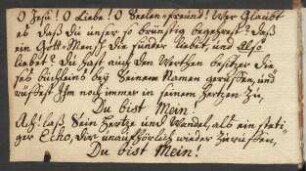 O Jesu! O Liebe! O Seelen-Freund! Wer Glaubt
es daß Du unser so brünstig begehrest? daß
ein Gott-Mensch die Sünder liebet, und also
liebet? Du hast auch den Werthen besitzer die
ses Büchleins bey Seinem Namen geruffen, und
ruffest Ihm noch immer in seinem Hertzen Zu,
Du bist Mein.
Ach! laß Sein Hertze und Wandel, als ein steti-
ger Echo, dir unaufhörlich wieder Zuruffen,
Du bist Mein!